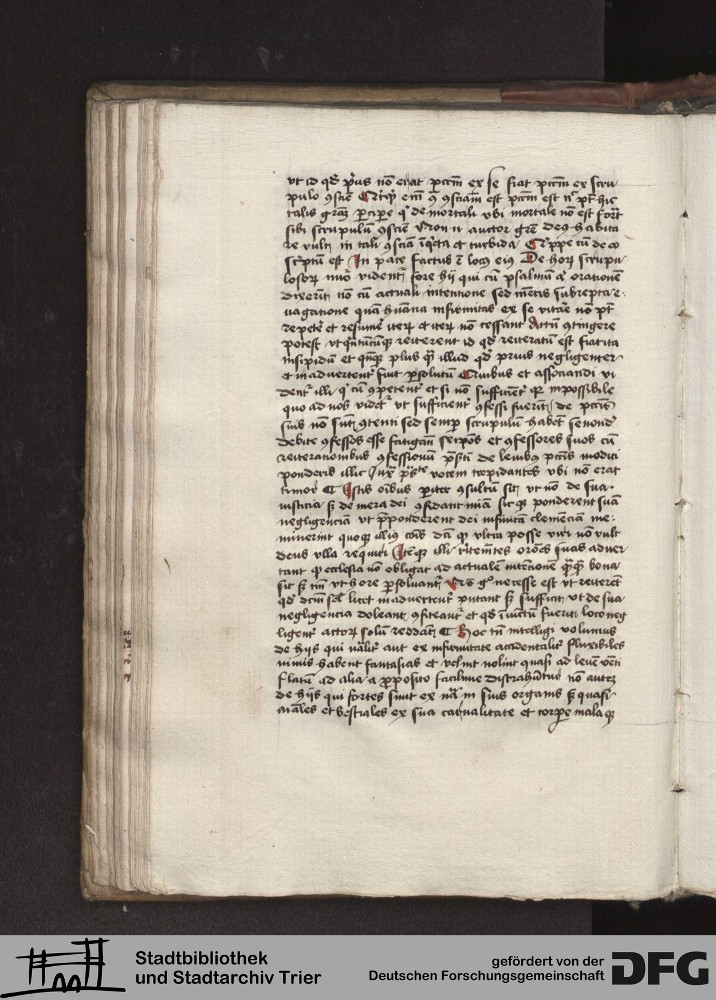 ut id qd prius nō erat pctm̄ ex se fiat pctm̄ ex scru
pulo ꝯscīe Et qꝫ em̄ ꝯ ꝯscīam est pctm̄ est nō pt hic
talis grām pcipe qꝛ de mortali ubi mortale nō est format
sibi scrupulū ꝯscīe Non n̄ auctor grē deꝯ habita
re vult in tali ꝯscīa īqeta et turbida Quippe cū de eo
scptum est In pace factus ē locꝯ eiꝯ De hoꝝ scrupu
losoꝝ nūo videntr fore hij qui cū psalmū aut orationē
dixerīt nō cū actuali intentione sed mētis subrepta e
vagatione quā hūana infirmitas ex se vitare nō pt
repete et resume iteꝝ et iteꝝ nō cessant Attn̄ ꝯtingere
potest ut quātūcūqꝫ reiterent id qd reiteratū est fiat ita
insipidū et qn̄qꝫ plus qꝫ illud qd prius negligenter
et inadvertent fuit psolutū Quibus et associandi vi
dentr illi qi cū ꝯpetent et si nō sufficient qꝛ impossibile
quo ad nos videtr ut sufficient ꝯfessi fuerīt de pctis
suis nō sunt ꝯtenti sed semp scrupulū habēt se non
debite ꝯfessos esse fatigant seipos et ꝯfessores suos cū
reiterationibus ꝯfessionū de levibꝯ pctis modici
ponderis illic Juxta vocem trepidantes ubi nō erat
timor Istis oībus pariter ꝯsultū sit ut nō de sua
iusticia sꝫ de mera dei ꝯfidant mīa sicqꝫ ponderent suā
negligenciā ut preponderent dei infinitā clemenciā me
minerint quoqꝫ illiꝯ qꝫ ultra posse viri nō vult
deus ulla requiri Itēqꝫ illi reiterātes orōes suas adver
tant qꝫ ecclesia nō obligat ad actualē intencionē bona
sit sꝫ tm̄ ut hore psolvant Nō gͦ necesse est ut reiteret
qd licet inadvertent putant sꝫ sufficit ut de sua
negligencia doleant ꝯfiteant et qd iniunctū fuerit loco neg
ligent actoꝝ solū reddant Hoc tn̄ intelligi volumus
de hijs qui nālit aut ex infirmitate accidentalit fluxibiles
nimis habent fantasias et velint nolint quasi ad levē vēti
flatū ad alia a pposito facilime distrahūtur nō autē
de hijs qui fortes sunt ex nā in suis organis sꝫ quasi
aīales et bestiales ex sua carnalitate et corpe mala qꝫ
Stadtbibliothek
und Stadtarchiv Trier
gefördert von der
Deutschen Forschungsgemeinschaft
DFG